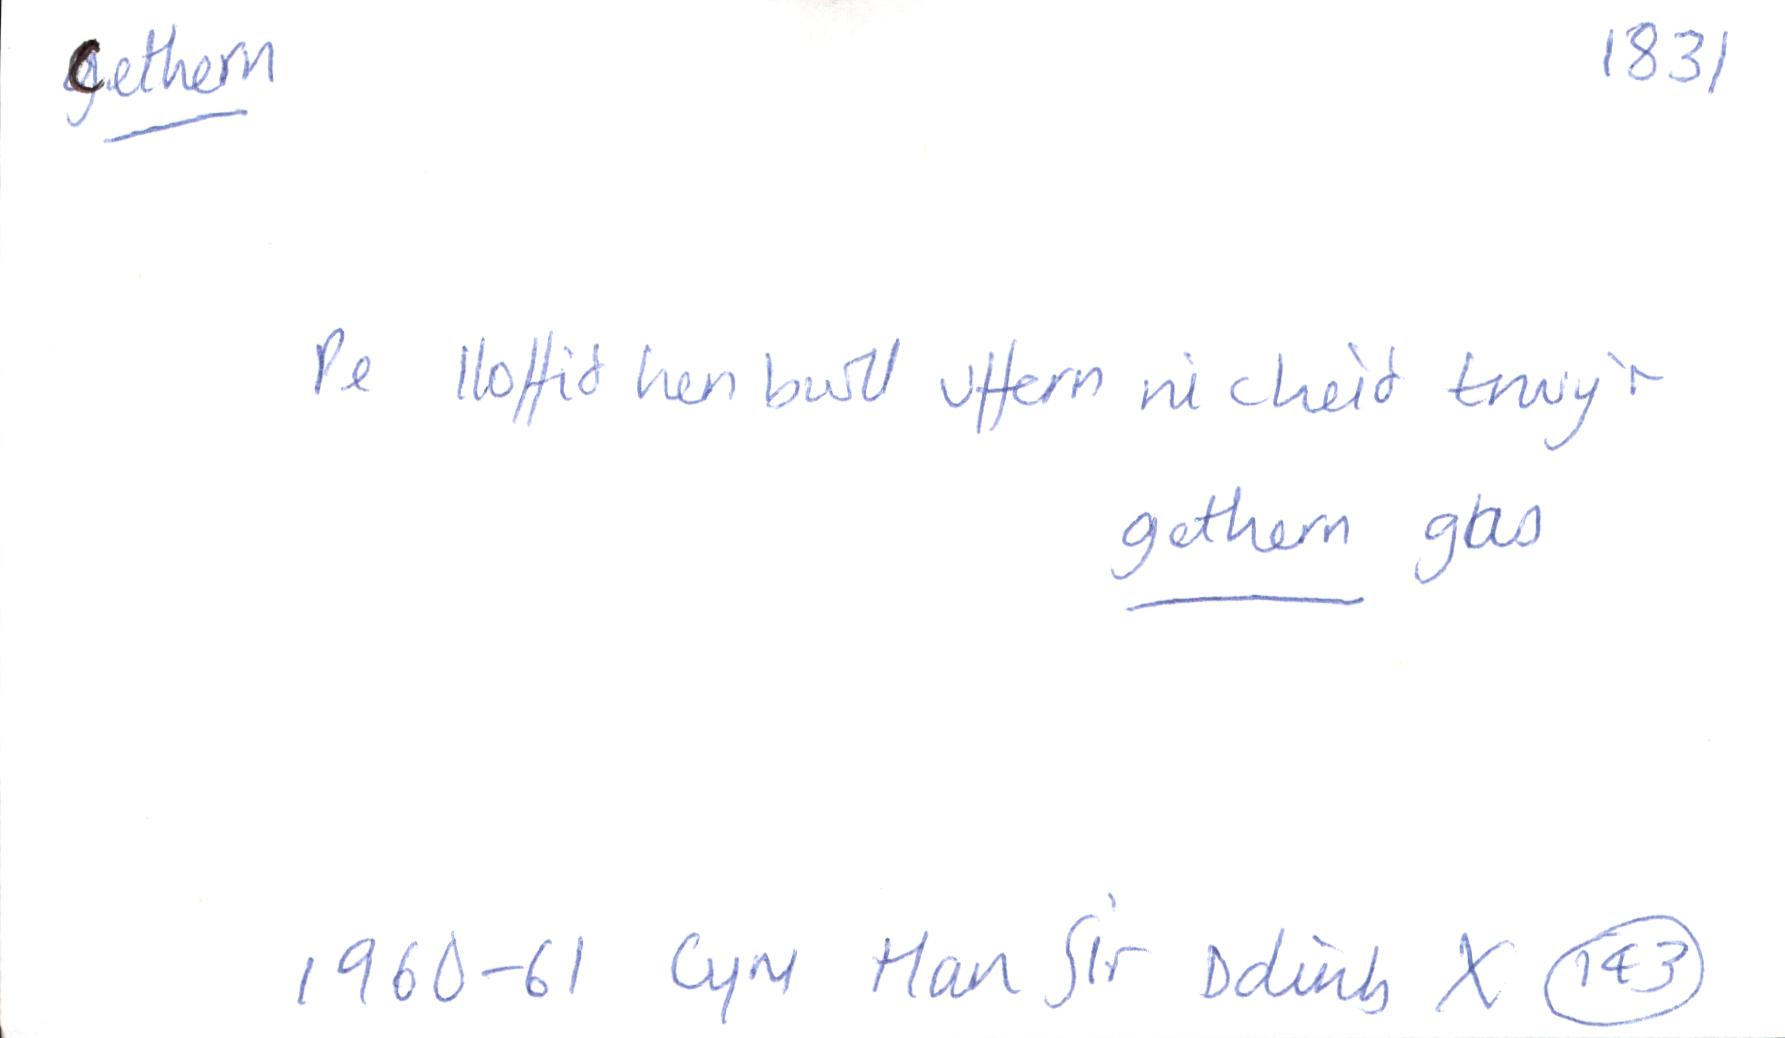 Cethern 1831
Pe lloffid hen bwll uffern ni cheid trwy'r
gethern glas
1960-61 Cym Han Sir Ddinb X 143